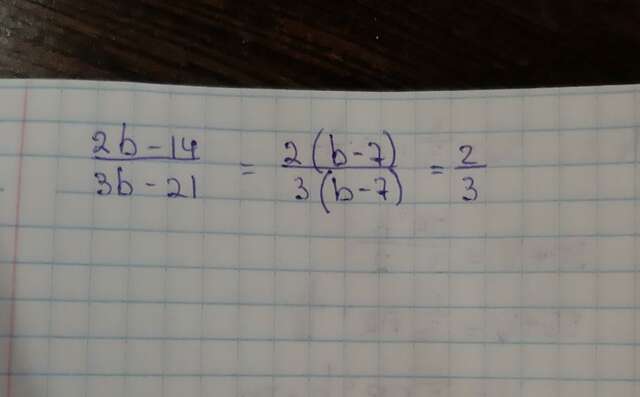 (2b - 14)/(3b - 21) = (2(b - 7))/(3(b - 7)) = 2/3